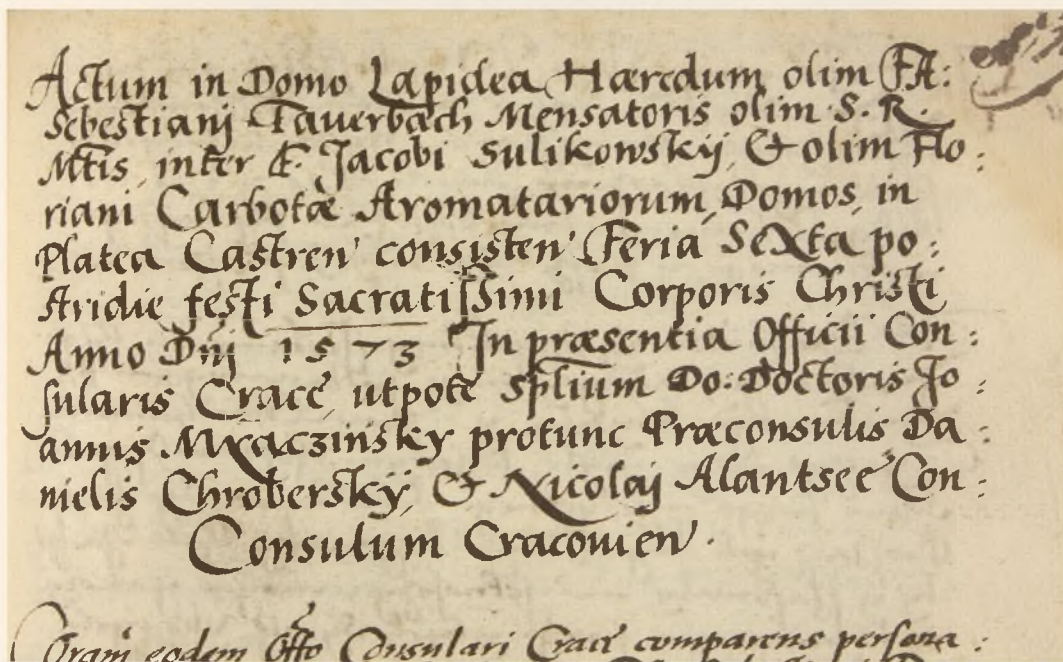 Actum in Domo Lapidea Hæredum olim FA:
Sebestianj Tauerbach Mensatoris olim S. R.
Mtis, inter F. Jacobi Sulikowskÿ, & olim Flo:
riani Carbotæ Aromatariorum, Domos, in
Platea Castren consisten Feria Sexta po:
stridie festi Sacratissimi Corporis Christi
Anno Dnj 1573 In præsentia Officii Con:
sularis Crace, utpote Splium Do: Doctoris Jo:
annis Mraczinsky protunc Præconsulis Da:
nielis Chroberskÿ, & Nicolaj Alantsee Con:
Consulum Cracouien.
Coram eodem Offo Consulari Crace comparens persona: